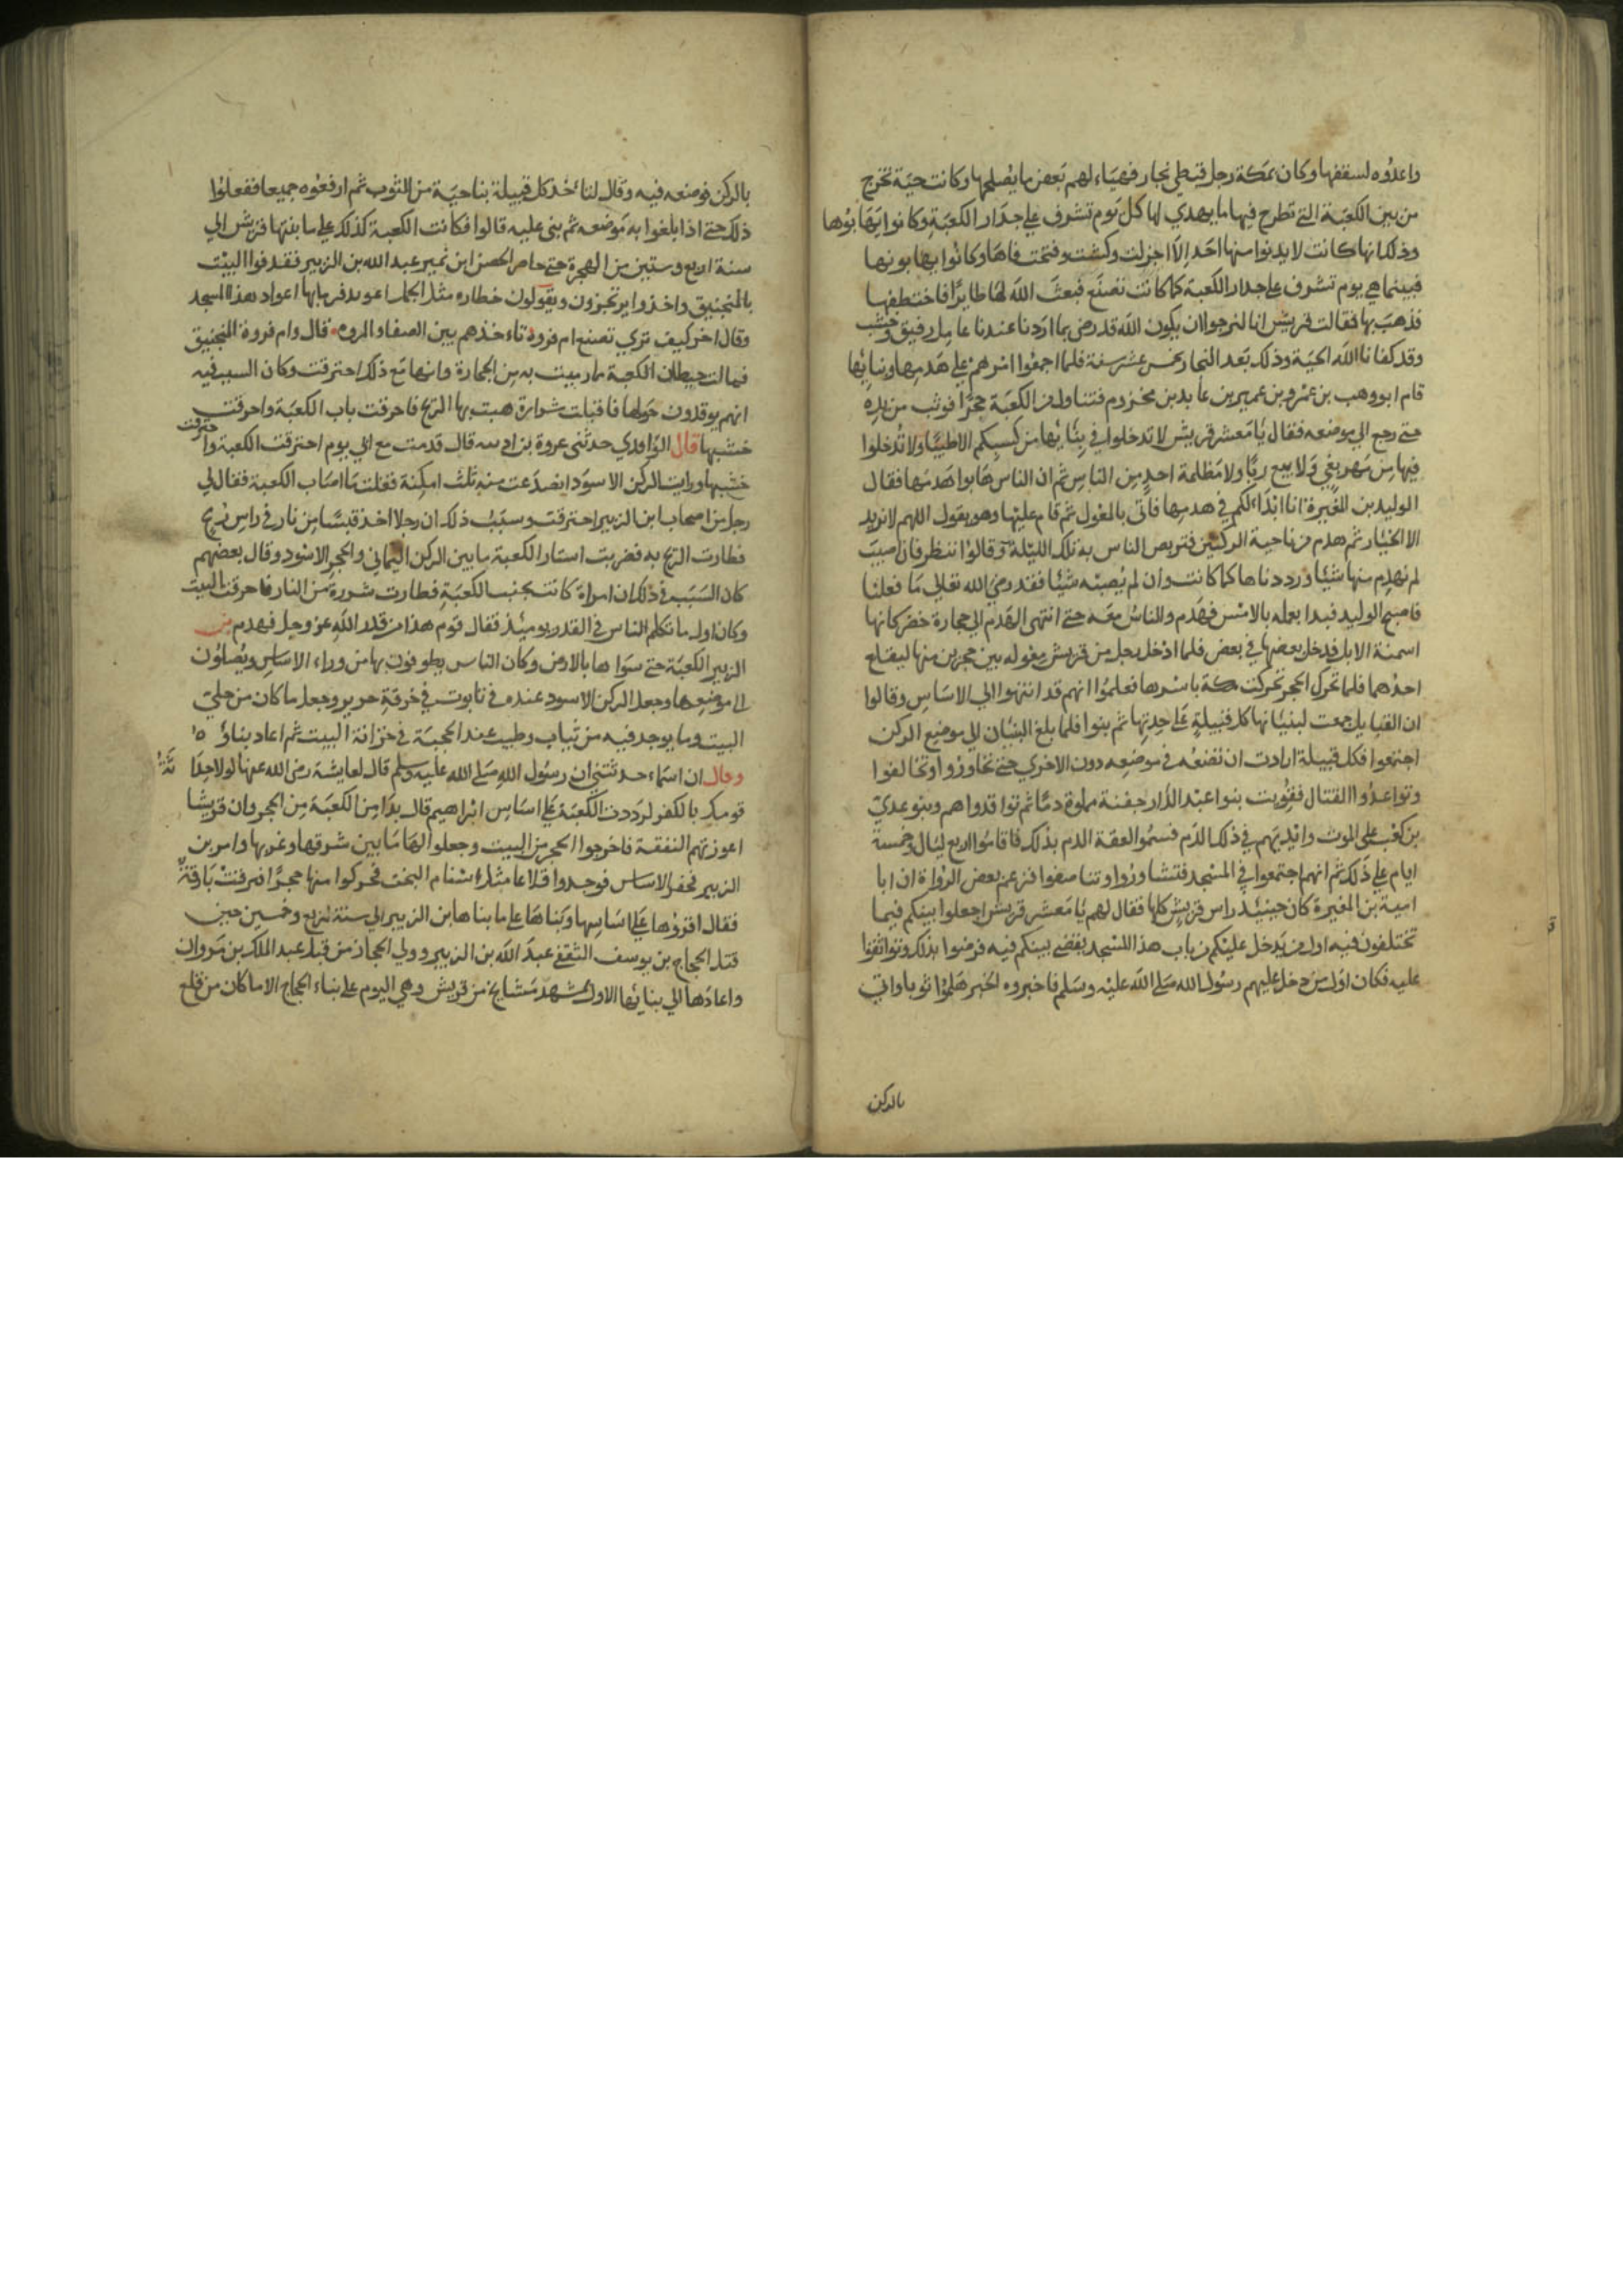 واعدوه لسقفها وكان بمكة رجل قبطي نجار فهياء لهم بعض ما يصلحها وكانت حية تخرج
من بين الكعبة التي تطرح فيها ما يهدي لها كل يوم تشرف على جدار الكعبة وكانوا يهابوها
وذلك انها كانت لا يدنوا منها احد الا اجزلت وكشت وفتحت فاها وكانوا يهابونها
فبينما هي يوم تشرف على جدار الكعبة كما كانت تصنع فبعث الله لها طايرا فاختطفها
فذهب بها فقالت قريش انا لنرجوا ان يكون الله قد رضي بما اردنا عندنا عامل رفيق وخشب
وقد كفانا الله الحية وذلك بعد الفجار بخمس عشر سنة فلما اجمعوا امرهم على هدمها وبنايها
قام ابو وهب بن عمرو بن عمير بن عايد بن مخزوم فتناول من الكعبة حجرا فوثب من يده
حتى رجع الى موضعه فقال يا معشر قريش لا تدخلوا في بنايها من كسبكم الا طيبا ولا تدخلوا
فيها من مهر بغي ولا بيع ربا ولا مظلمة احد من الناس ثم ان الناس هابوا هدمها فقال
الوليد بن المغيرة انا ابداءكم في هدمها فاتى بالمعول ثم قام عليها وهو يقول اللهم لا نريد
الا الخيار ثم هدم من ناحية الركنين فتربص الناس به تلك الليلة وقالوا ننظر فان اصيب
لم نهدم منها شيا ورددناها كما كانت وان لم يصبه شيا فقد رضي الله تعالى ما فعلنا
فاصبح الوليد فبدا بعمله بالامس فهدم والناس معه حتى انتهى الهدم الى حجارة خضر كانها
اسمنة الابل فدخل بعضها في بعض فلما ادخل رجل من قريش معوله بين حجرين منها ليقلع
احدهما فلما تحرك الحجر تحركت مكة باسرها فعلموا انهم قد انتهوا الى الاساس وقالوا
ان القبايل جمعت لبنيانها كل قبيلة على حدتها ثم بنوا فلما بلغ البنيان الى موضع الركن
اجتمعوا فكل قبيلة ارادت ان تضعه في موضعه دون الاخري حتى تحاوزوا وتخالفوا
وتواعدوا القتال فقربت بنوا عبد الدار جفنة مملوة دما ثم تواقدوا هم وبنو عدي
بن كعب على الموت وايديهم في ذلك الدم فسموا لعقة الدم بذلك فاقاموا اربع ليال وخمسة
ايام على ذلك ثم انهم اجتمعوا في المسجد فتشاوروا وتناصفوا فزعم بعض الرواة ان ابا
امية بن المغيرة كان حينيذ راس قريش كلها فقال لهم يا معشر قريش اجعلوا بينكم فيما
تختلفون فيه اول من يدخل عليكم من باب هذا المسجد يقضي بينكم فيه فرضوا بذلك وتواثقوا
عليه فكان اول من دخل عليهم رسول الله صلى الله عليه وسلم فاخبروه الخبر هلموا ثوبا واتي
بالركن
بالركن فوضعه فيه وقال لتاءخذ كل قبيلة بناحية من الثوب ثم ارفعوه جميعا ففعلوا
ذلك حتى اذا بلغوا به موضعه ثم بنى عليه قالوا فكانت الكعبة كذلك على ما بنتها قريش الى
سنة اربع وستين من الهجرة حتى حاصر الحصن ابن نمير عبد الله بن الزبير فقدفوا البيت
بالمنجنيق واخذوا يرتجزون ويقولون خطاره مثل الجمل اعواد هذا المسجد
وقال اخر كيف تري تصنع ام فروه تاءخذهم بين الصفا والمروه قال وام فروة المنجنيق
فمالت حيطان الكعبة مما رميت به من الحجارة وانها مع ذلك احترقت وكان السبب فيه
انهم يوقدون حولها فاقبلت شرارة هبت بها الريح فاحرقت باب الكعبة واحرقت
خشبها قال الواقدي حدثنى عروة بن قال قدمت مع ابي يوم احترقت الكعبة واحترقت
خشبها ورايت الركن الاسود انصدعت منه ثلث امكنة فقلت ما اصاب الكعبة فقال لي
رجل من اصحاب ابن الزبير احترقت وسبب ذلك ان رجلا اخذ قبسا من نار في راس رمح
فطارت الريح به فضربت استار الكعبة ما بين الركن اليماني والحجر الاسود وقال بعضهم
كان السبب في ذلك ان امراة كانت بجنب الكعبة فطارت شررة من النار فاحرقت البيت
وكان اول ما تكلم الناس في القدر يوميذ فقال قوم هذا من قدر الله عز وجل فهدم بن
الزبير الكعبة حتى سواها بالارض وكان الناس يطوفون بها من وراء الاساس ويصلون
الى موضعها وجعل الركن الاسود عنده في تابوت في خرقة حرير وجعل ما كان من حلي
البيت وما يوجد فيه من ثياب وطيب عند الحجبة في خزانة البيت ثم اعاد بناؤه
وقال ان اسماء حدثتني ان رسول الله صلى الله عليه وسلم قال لعايشة رضي الله عنها لولا
قومك بالكفر لرددت الكعبة على اساس ابراهيم قال بدا من الكعبة من الحجر وان قريشا
اعوزتهم النفقة فاخرجوا الحجر من البيت وجعلوا لها ما بين شرقها وغربها وامر بن
الزبير فحفر الاساس فوجدوا قلاعا مثل اسنام البخت فحركوا منها حجرا فبرقت بارقة
فقال اقروها على اساسها وبناها على ما بناها بن الزبير الى سنة اربع وخمسين حين
قتل الحجاج بن يوسف الثقفي عبد الله بن الزبير وولي الحجاز من قبل عبد الملك بن مروان
واعادها الى بنايها الاول بمشهد مشايخ من قريش وهي اليوم على بناء الحجاج الا ما كان من قلع